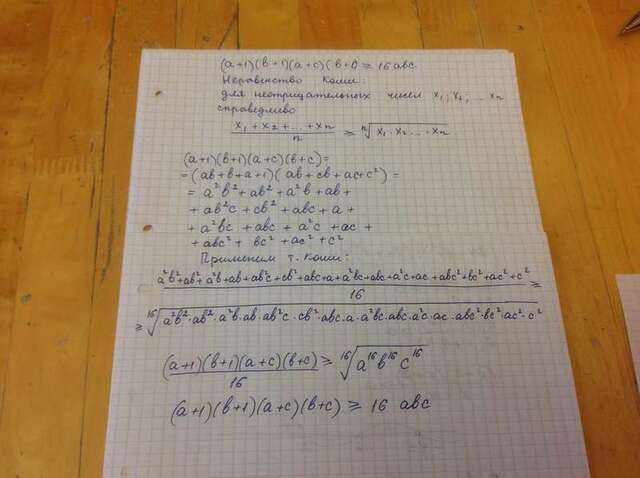 (a+1)(b+1)(a+c)(b+c) ≥ 16 abc
Неравенство Коши:
для неотрицательных чисел x₁; x₂, ... xₙ
справедливо
(x₁ + x₂ + ... + xₙ)/n ≥ ⁿ√(x₁ · x₂ ... · xₙ)
(a+1)(b+1)(a+c)(b+c) =
= (ab+b+a+1)(ab+cb+ac+c²) =
= a²b² + ab² + a²b + ab +
+ ab²c + cb² + abc + a +
+ a²bc + abc + a²c + ac +
+ abc² + bc² + ac² + c²
Применим т. Коши:
(a²b²+ab²+a²b+ab+ab²c+cb²+abc+a+a²bc+abc+a²c+ac+abc²+bc²+ac²+c²)/16 ≥
≥ ¹⁶√(a²b²·ab²·a²b·ab·ab²c·cb²·abc·a·a²bc·abc·a²c·ac·abc²·bc²·ac²·c²)
(a+1)(b+1)(a+c)(b+c)/16 ≥ ¹⁶√(a¹⁶b¹⁶c¹⁶)
(a+1)(b+1)(a+c)(b+c) ≥ 16 abc